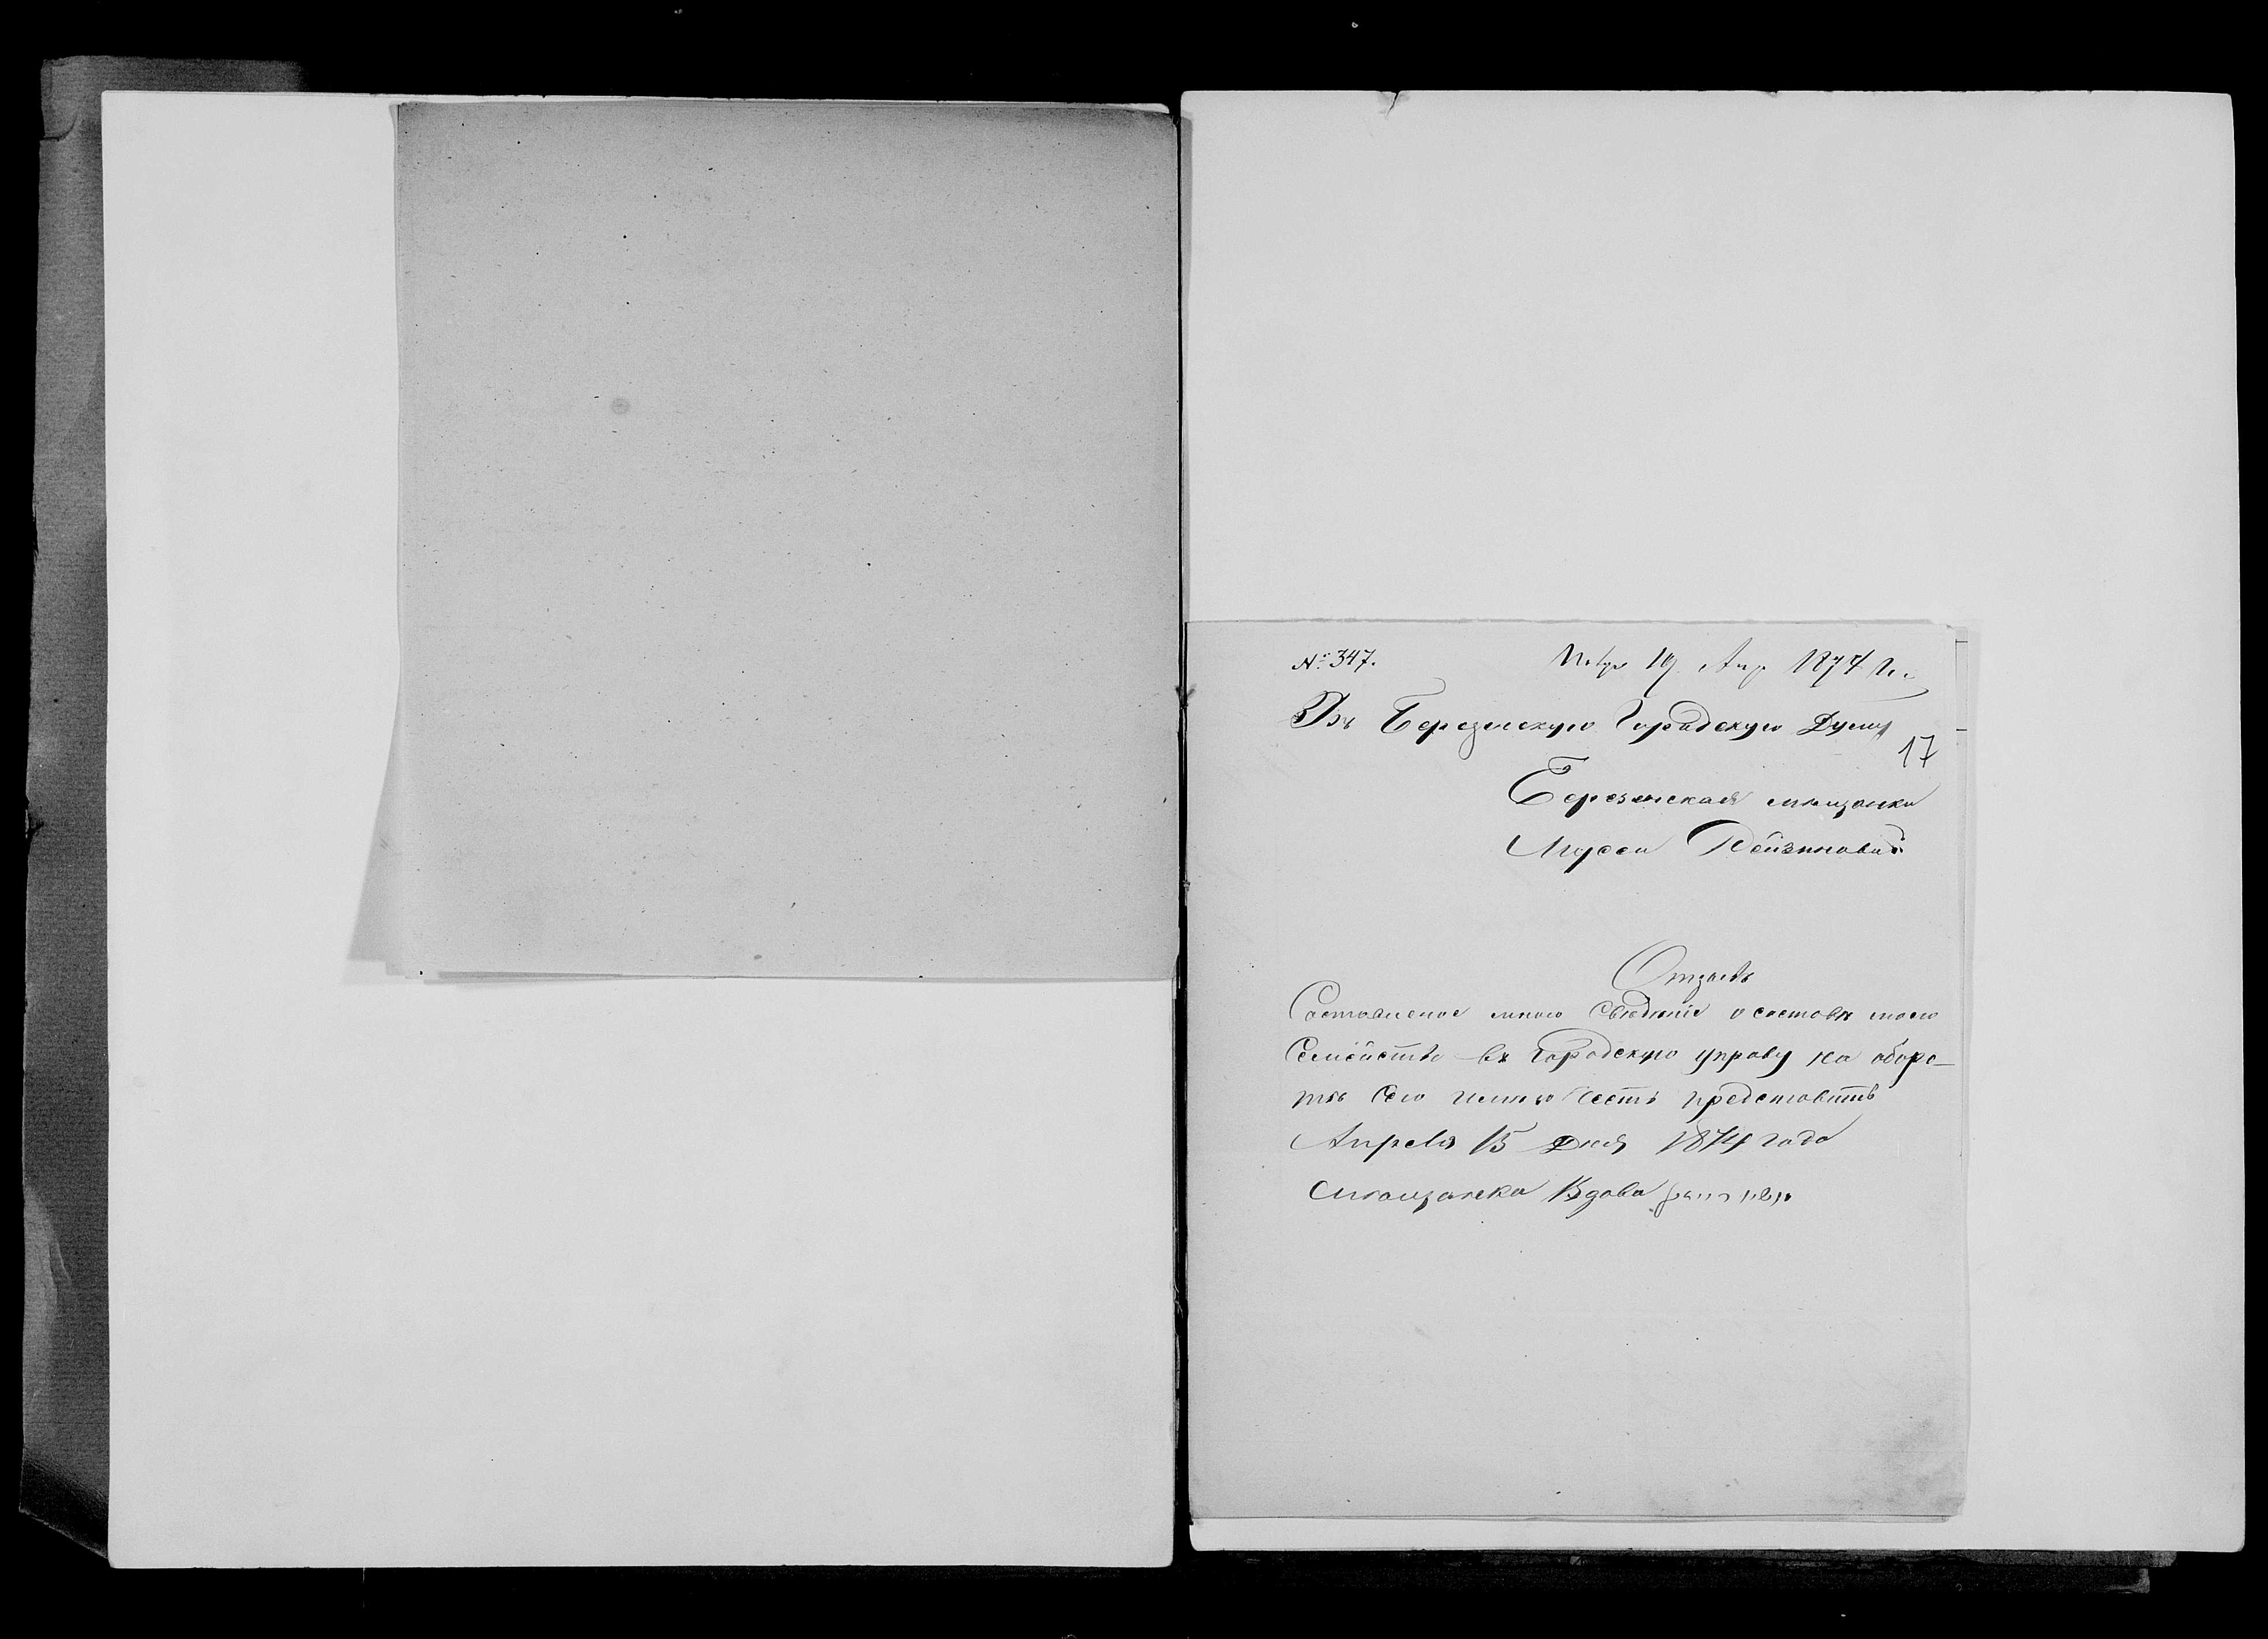 № 347.
19 Апр 1874 г.
Въ Березнскую Городскую Думу
17
Березенская мещанки
Мусеи Рейзиновой
Отзывъ
Составленое мною Сведение о составе моего
Семейства въ Городскую управу на оборо-
те сего имею честь представить
Апреля 15 дня 1874 года
Мещанка Вдова